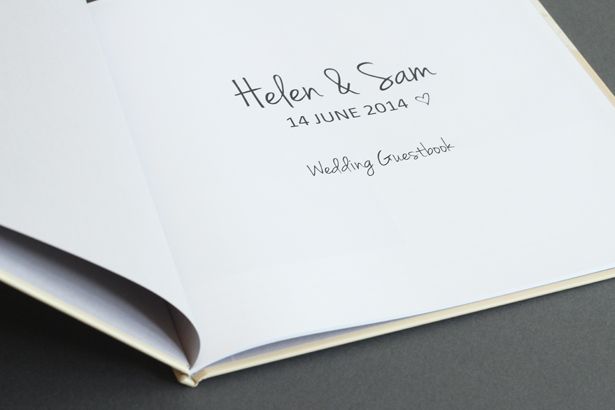 Helen & Sam
14 JUNE 2014 ♡
Wedding Guestbook